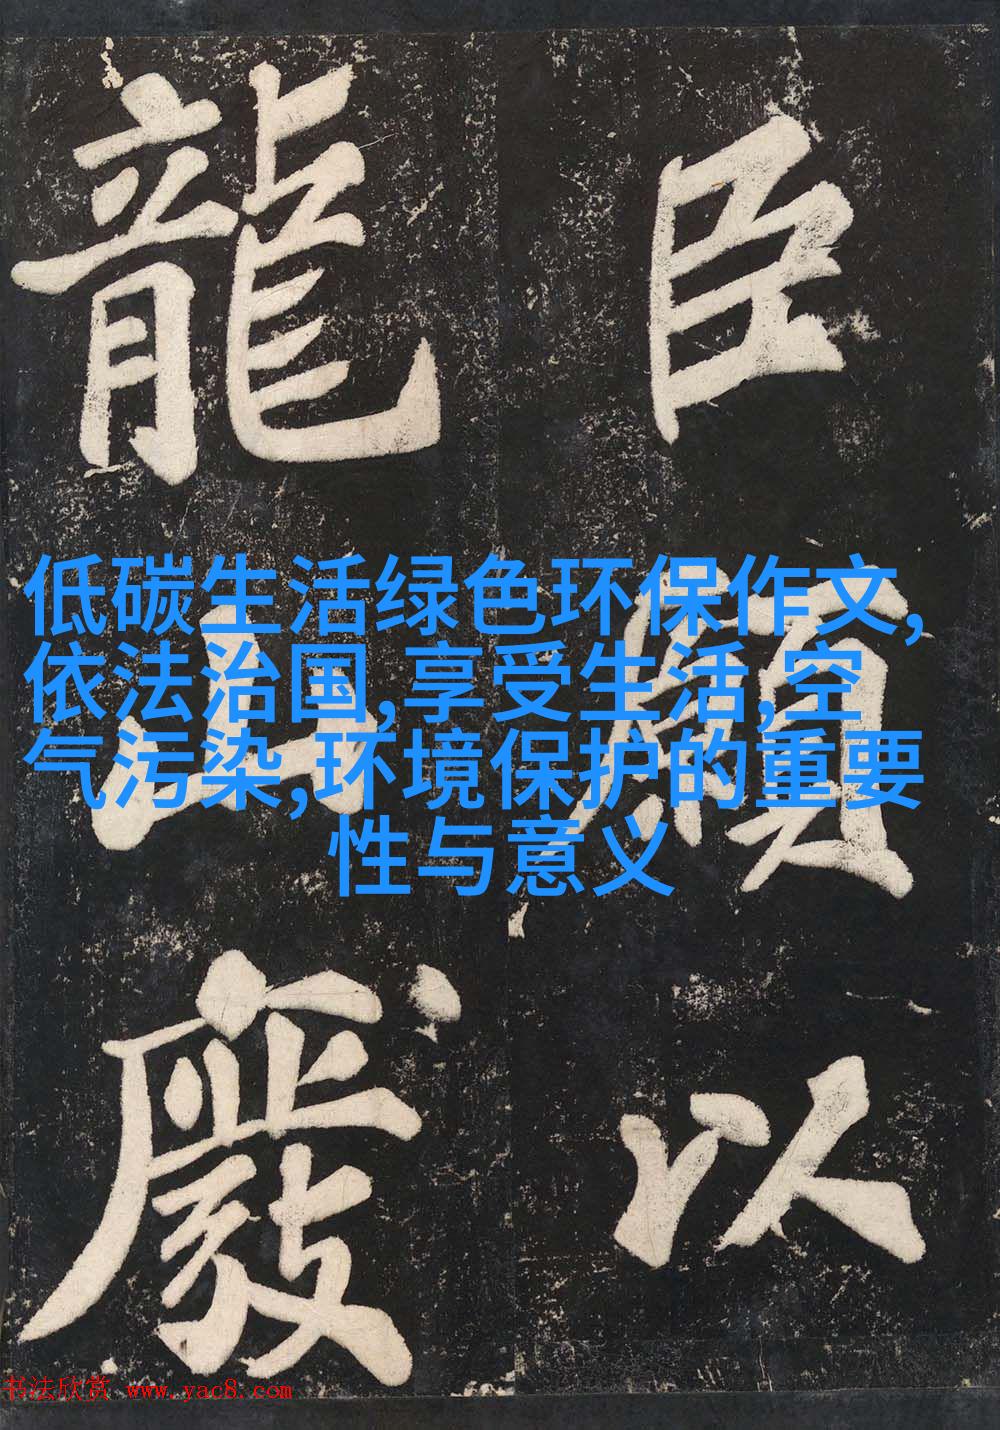 臣願以
龍山廢
低碳生活绿色环保作文,
依法治国,享受生活,空
气污染,环境保护的重要
性与意义
书法欣赏 www.yac8.com